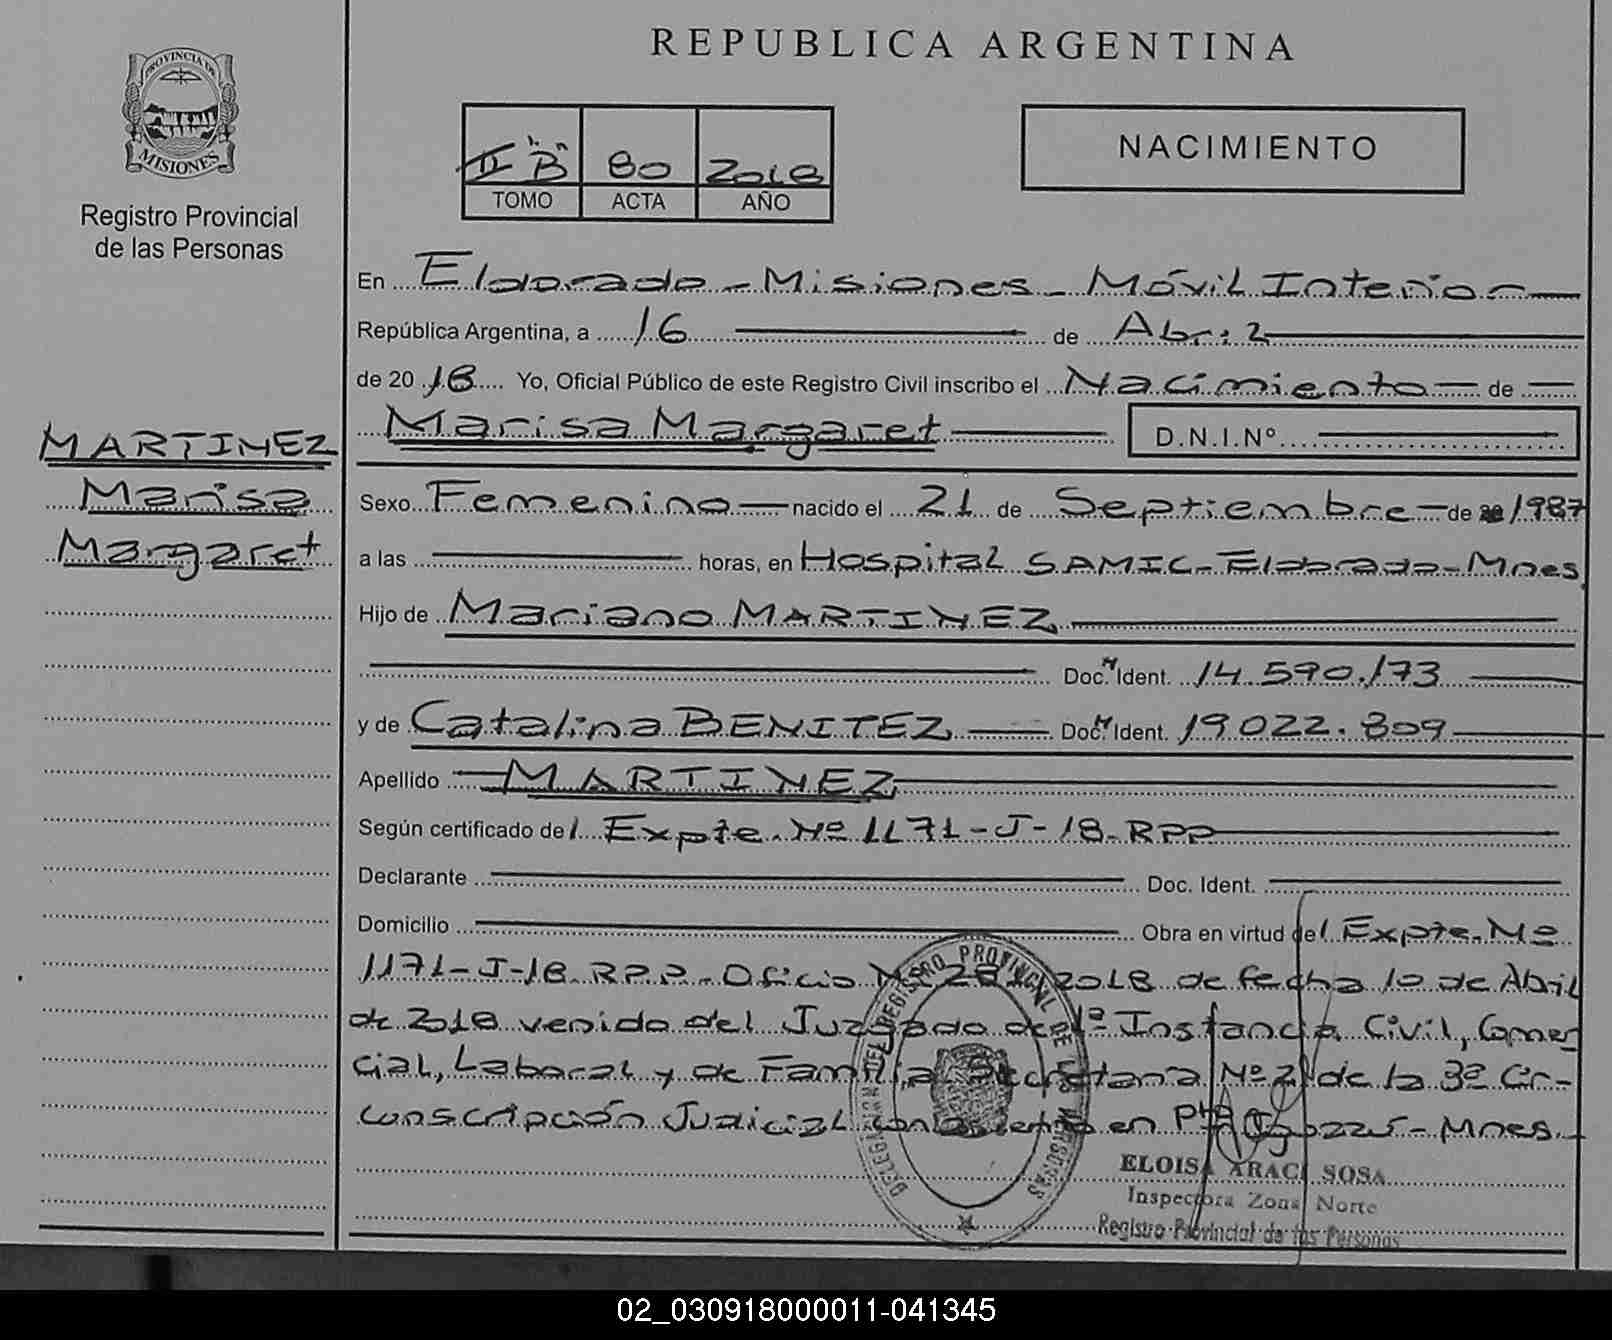 REPUBLICA ARGENTINA
PROVINCIA DE
MISIONES
Registro Provincial
de las Personas
II "B" 80 2018
TOMO ACTA AÑO
NACIMIENTO
MARTINEZ
Marisa
Margaret
En Eldorado - Misiones - Móvil Interior
República Argentina, a 16 de Abril
de 2018 Yo, Oficial Público de este Registro Civil inscribo el Nacimiento de
Marisa Margaret D.N.I.Nº
Sexo Femenino nacido el 21 de Septiembre de 1987
a las horas, en Hospital SAMIC - Eldorado - Mnes
Hijo de Mariano MARTINEZ
Doc. M Ident. 14.590.173
y de Catalina BENITEZ Doc. M Ident. 19.022.809
Apellido MARTINEZ
Según certificado del Expte. Nº 1171-J-18-RPP
Declarante Doc. Ident.
Domicilio Obra en virtud del Expte. Nº
1171-J-18 R.P.P. - Oficio Nº 2018 de fecha 10 de Abril
de 2018 venido del Juzgado de 1º Instancia Civil, Comer
cial, Laboral y de Familia Secretaria Nº 2 de la 3º Cir-
cunscripción Judicial con asiento en Pto Iguazú - Mnes.
DELEGACION DEL REGISTRO PROVINCIAL DE LAS PERSONAS
ELOISA ARACI SOSA
Inspectora Zona Norte
Registro Provincial de las Personas
02_030918000011-041345